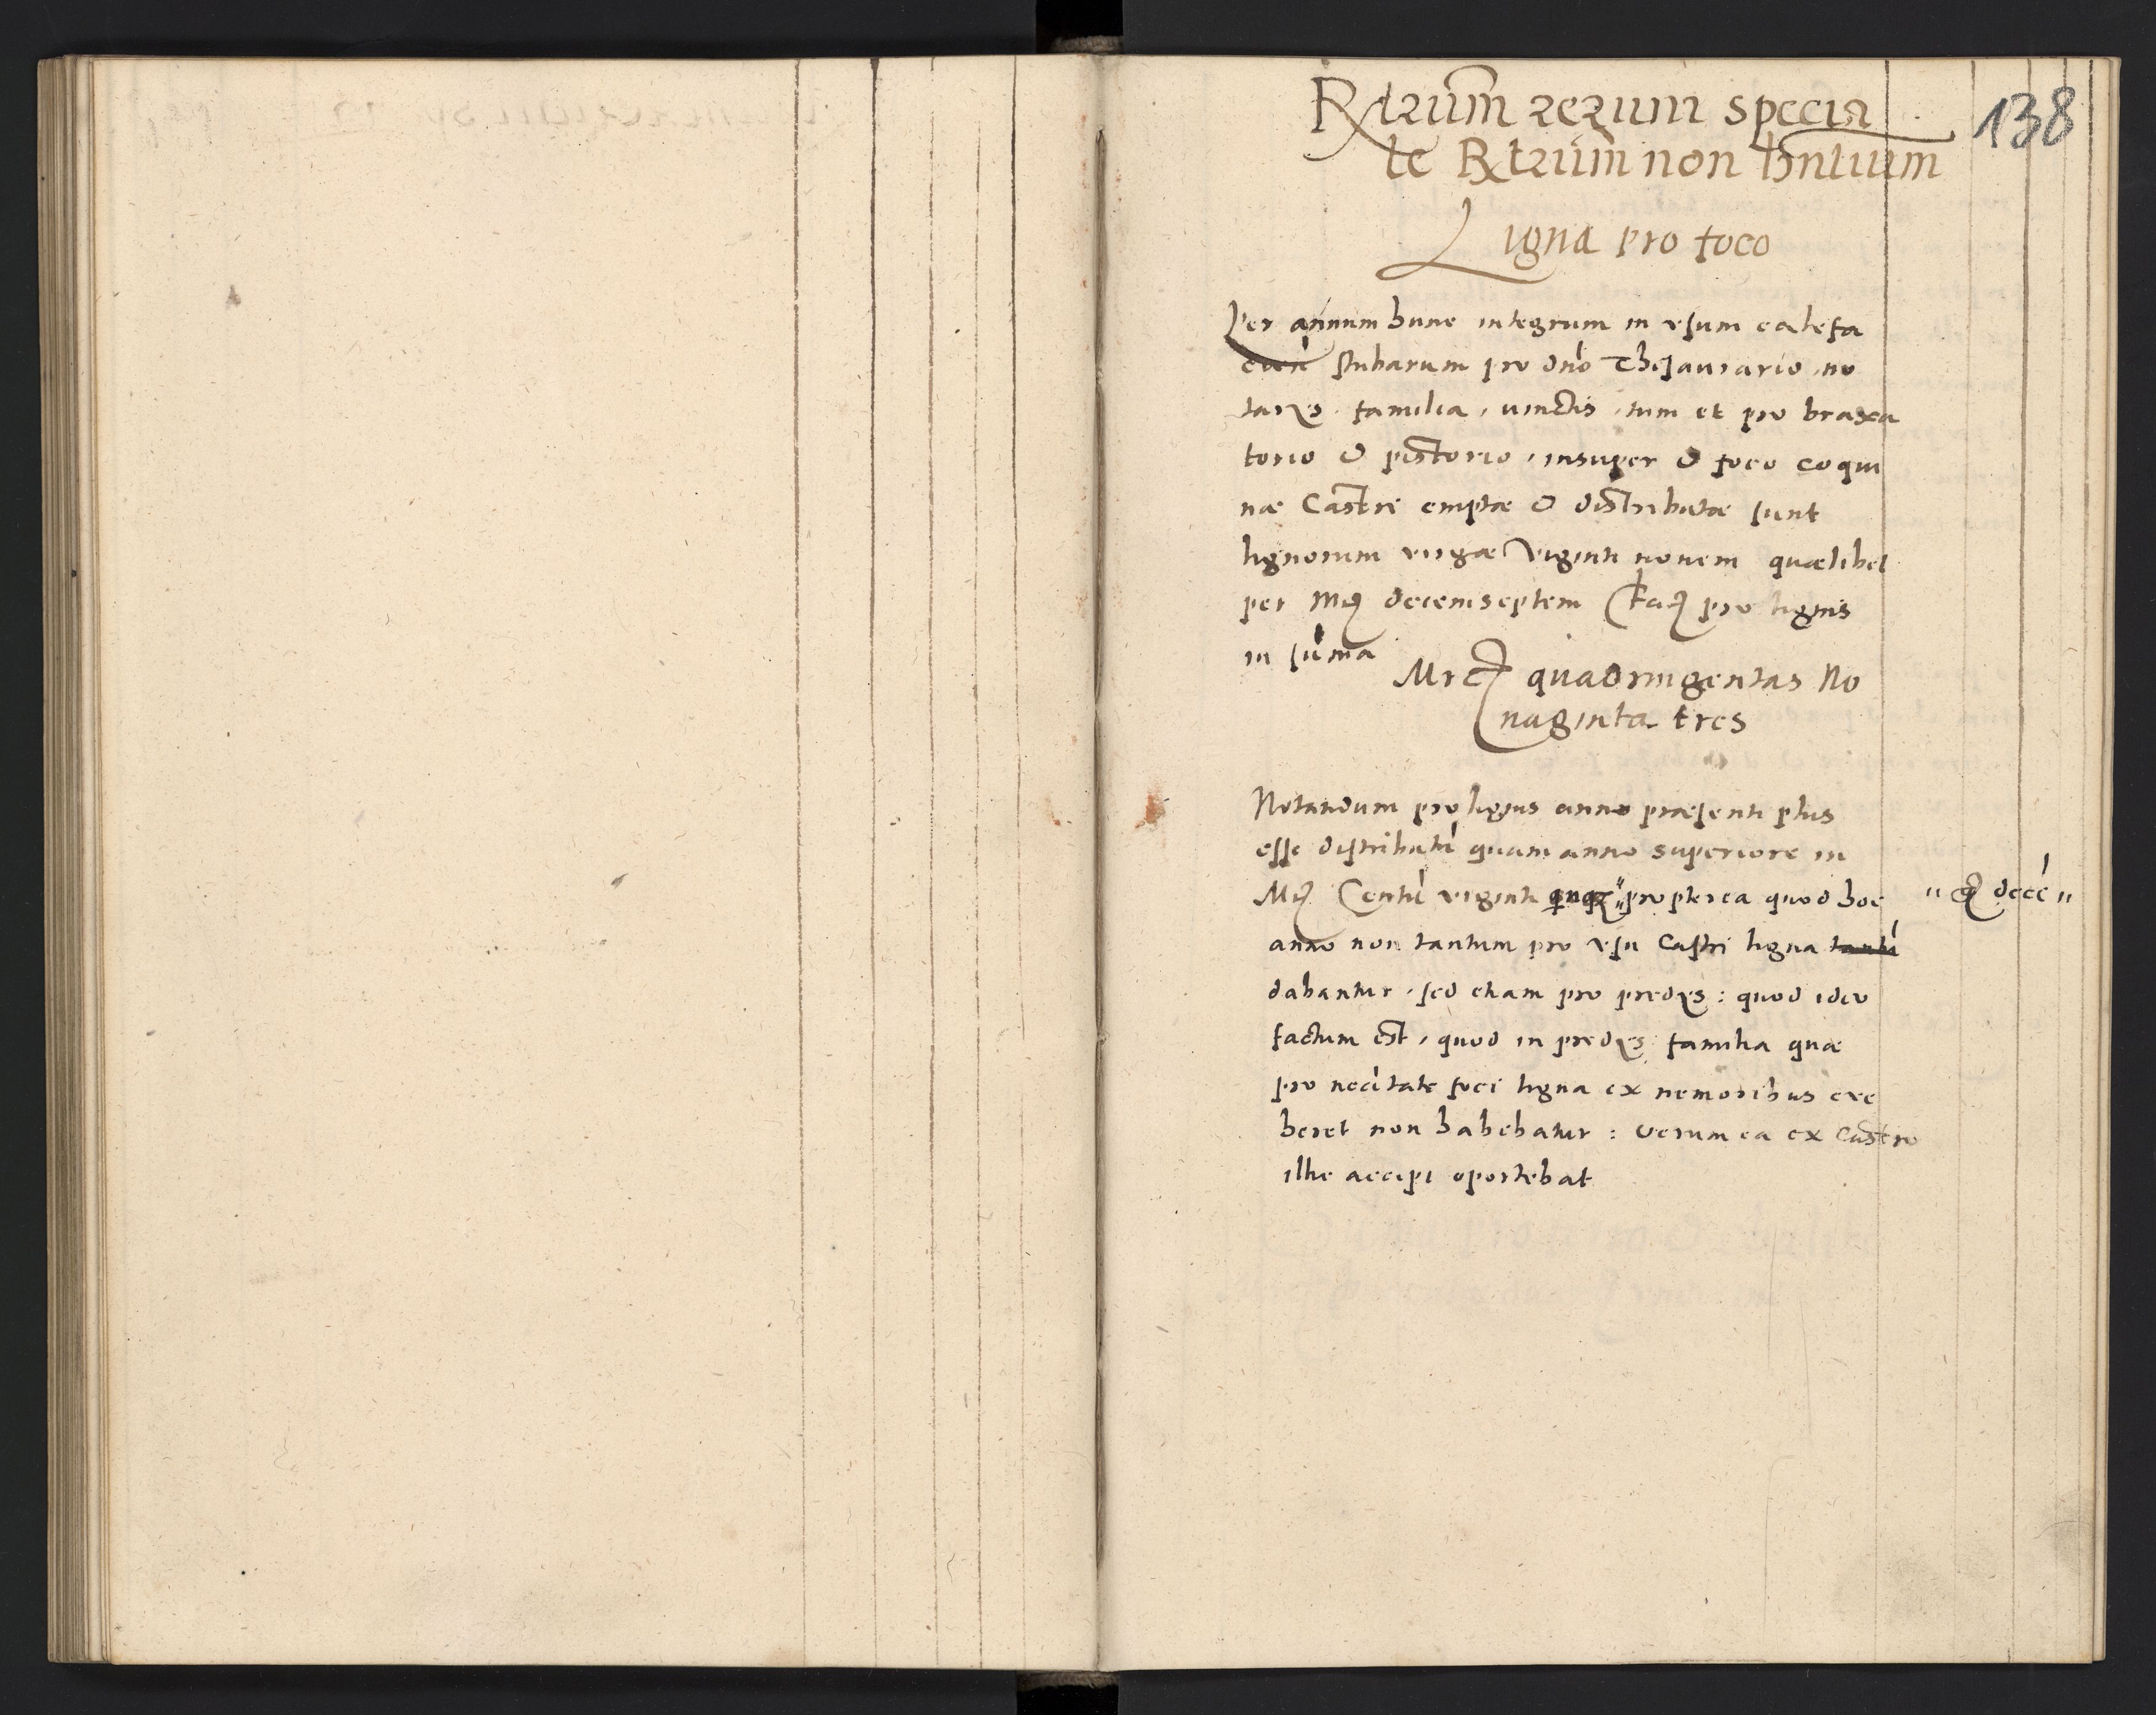 138
Rtrum rerum specia
le Rtrum non hntium
Ligna pro foco
Per annum hunc integrum in vsum calefa
cien stubarum pro dno Thesaurario, no
tarys, familia, vinctis, tum et pro braxa
torio & pistorio, insuper & foco coqui
næ Castri emptæ & distributæ sunt
lignorum virgæ viginti nouem quælibet
per mrc decemseptem facit pro lignis
in suma
Mrc quadringentas No
naginta tres
Notandum pro lignis anno præsenti plus
esse distributu quam anno superiore in
Mrc Centu viginti quinqz "propterea quod hoc
" gr decé "
anno non tantum pro vsu Castri ligna tantu
dabantur, sed etiam pro predys: quod ideo
factum est, quod in predys familia quæ
pro necitate foci ligna ex nemoribus exe
heret non habebatur: verum ea ex Castro
illic accipi oportebat